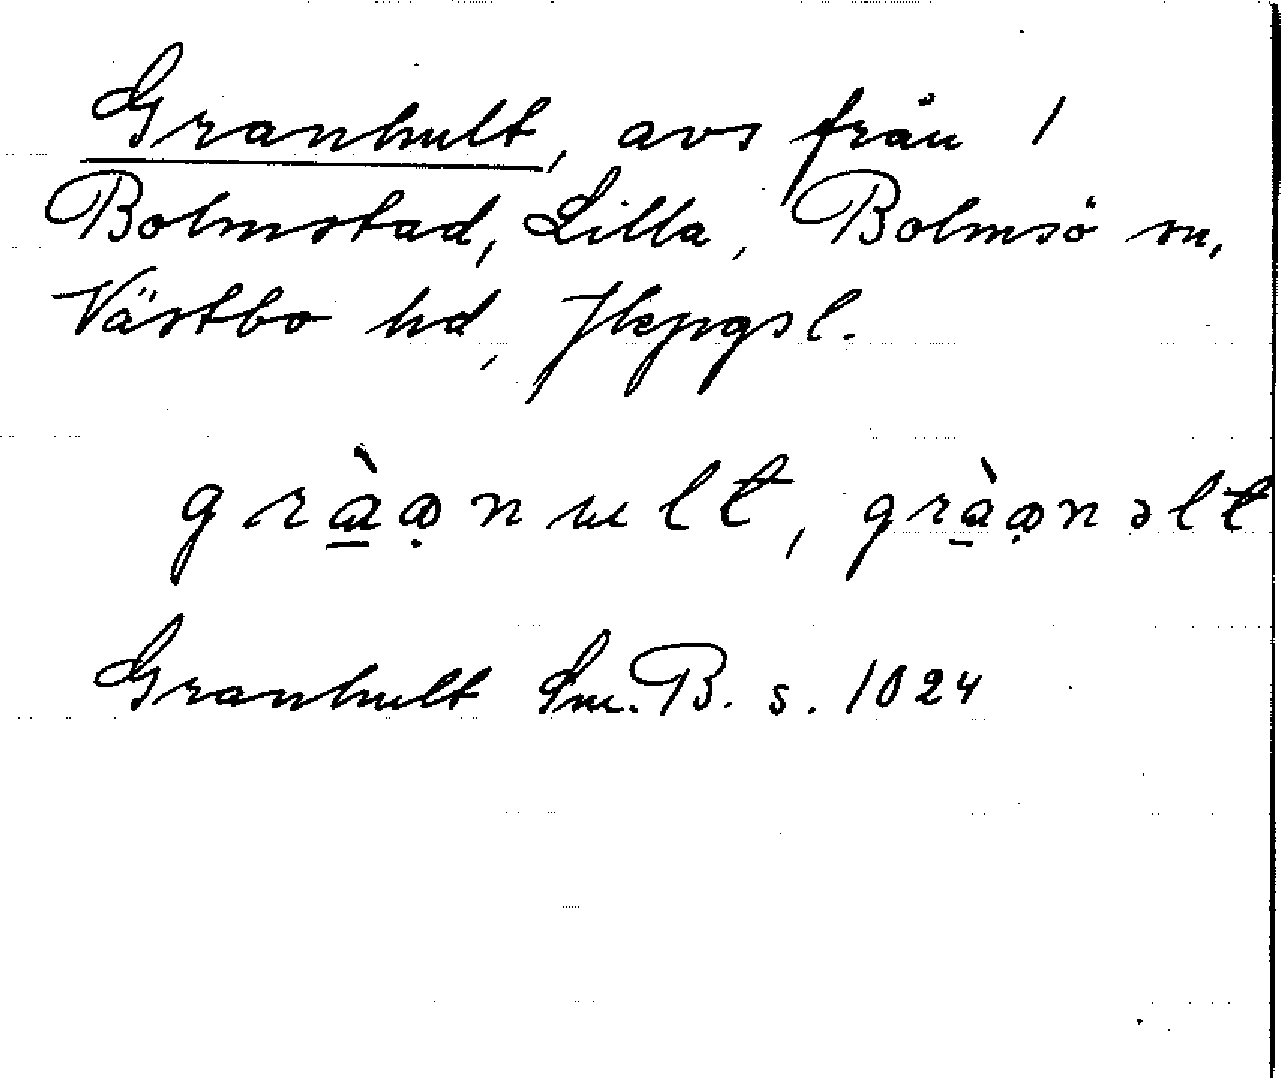 Granhult, avs från 1
Bolmstad, Lilla, Bolmsö sn,
Västbo hd, Jkpgsl.
gràạnult, gràạnəlt
Granhult Sm.B. s. 1024